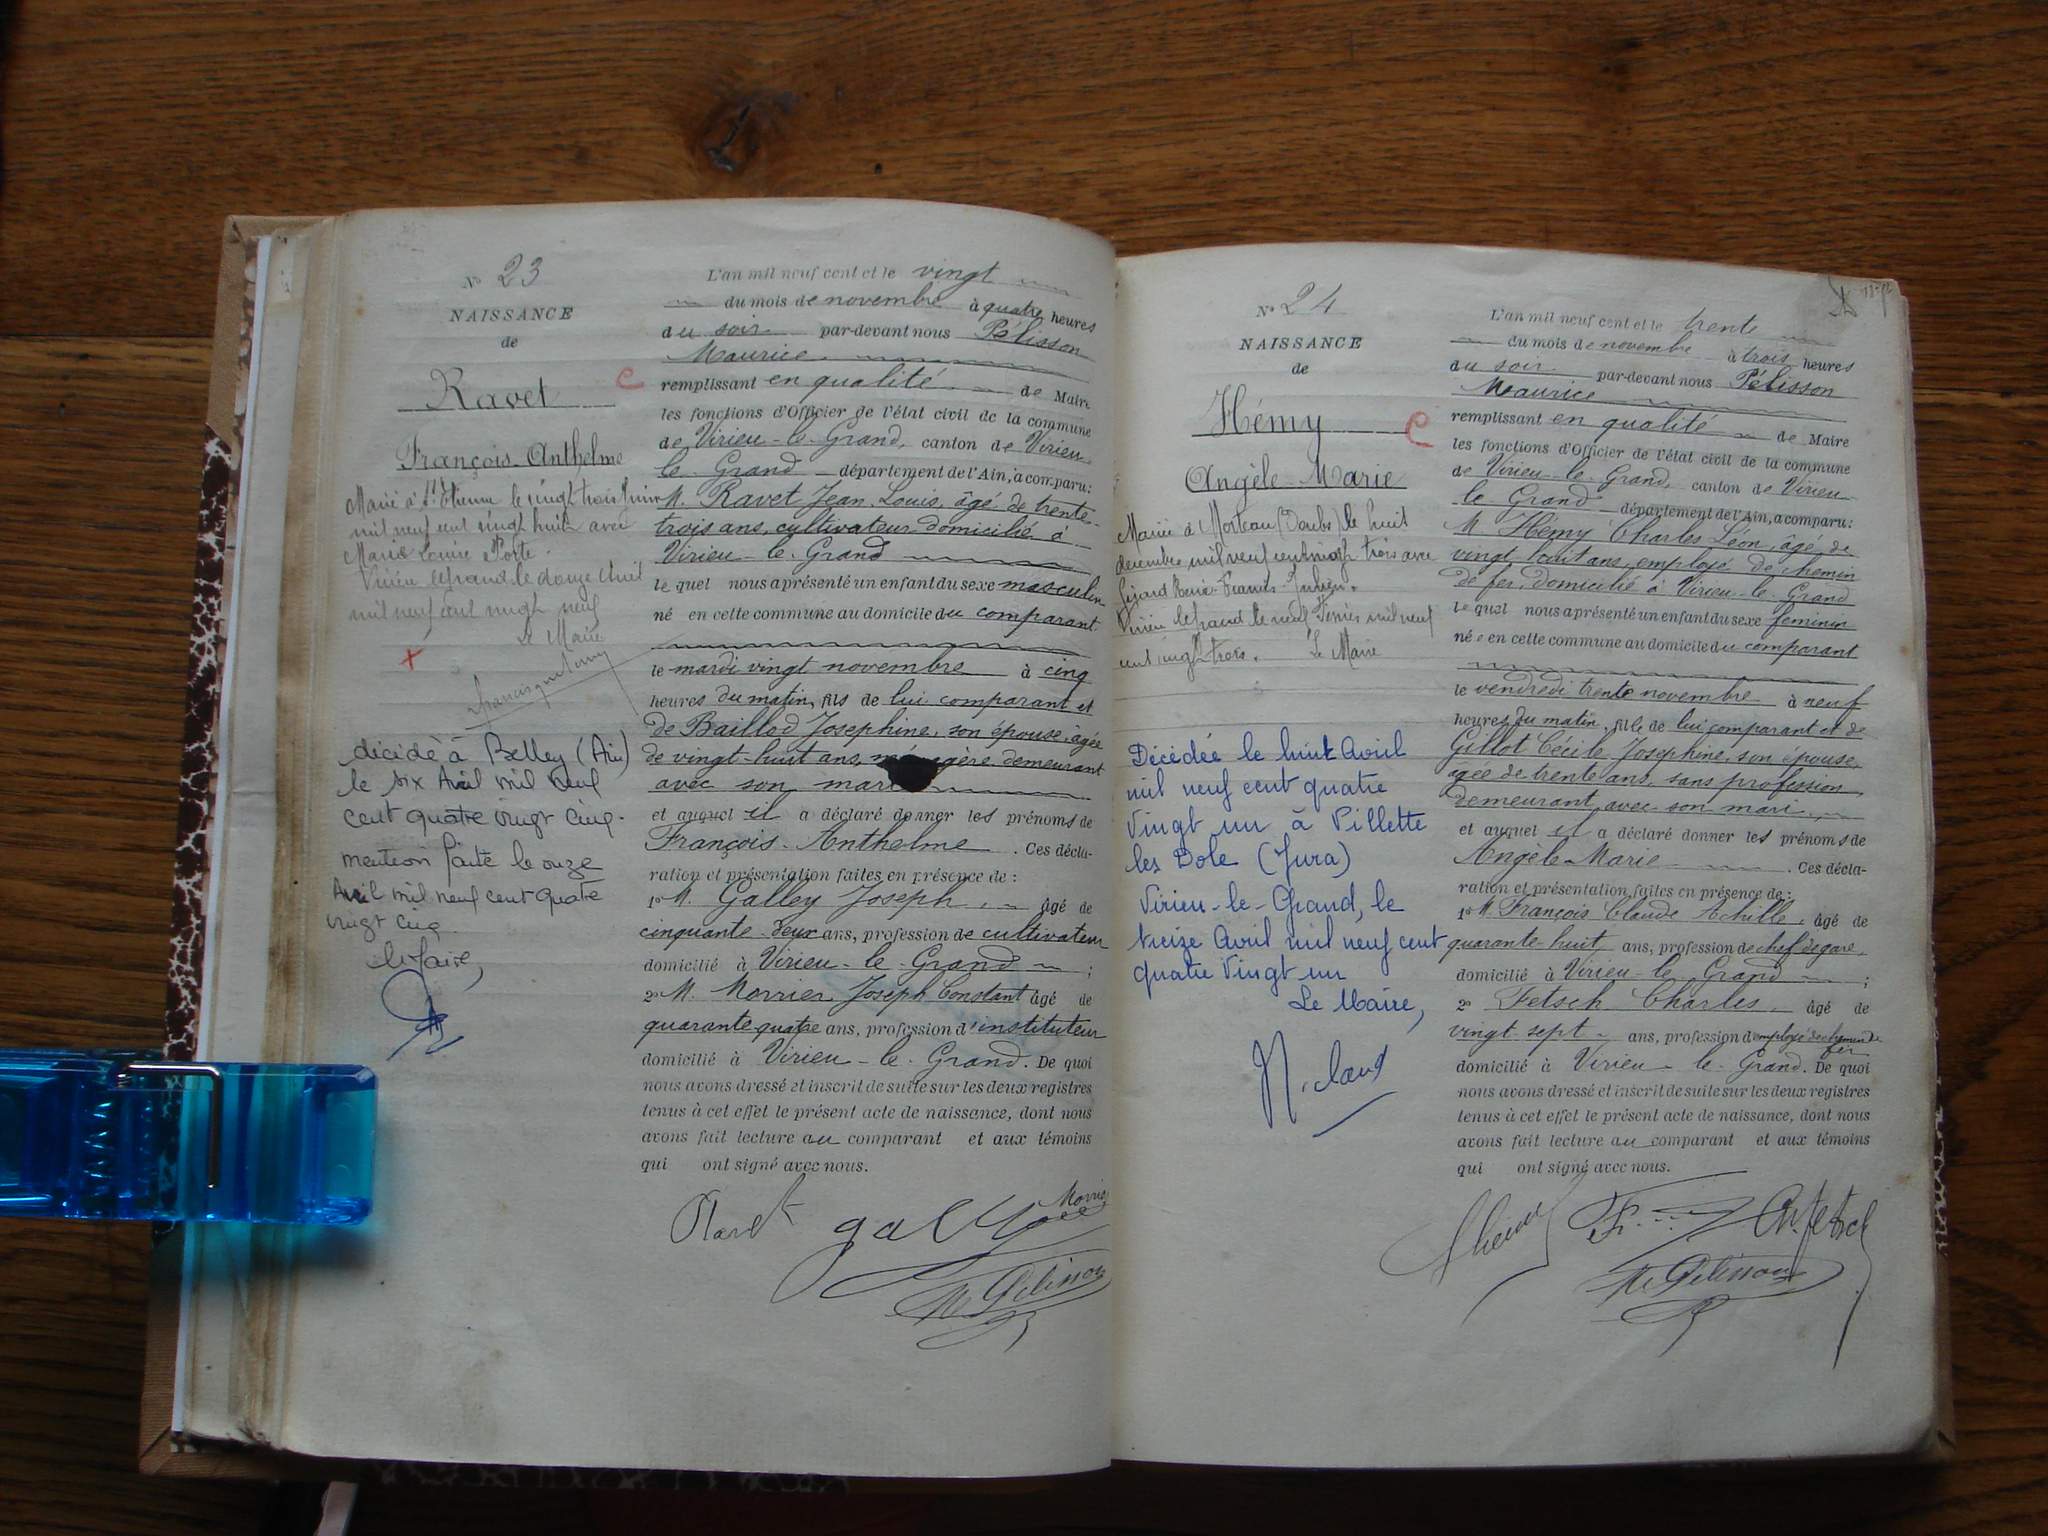 N° 23
NAISSANCE
de
Ravet
François-Anthelme
Marié à St Etienne le vingt trois Juin
mil neuf cent vingt huit avec
Marie Louise Porte.
Virieu le grand le douze
mil neuf cent vingt neuf
Le Maire
décédé à Belley (Ain)
le six Avril mil neuf
cent quatre vingt cinq.
mention faite le onze
Avril mil neuf cent quatre
vingt cinq
le Maire,
L'an mil neuf cent et le vingt
du mois de novembre à quatre heures
du soir par-devant nous Pélisson
Maurice
remplissant en qualité de Maire
les fonctions d'Officier de l'état civil de la commune
de Virieu-le-Grand, canton de Virieu
le-Grand département de l'Ain, a comparu:
M. Ravet Jean Louis, âgé de trente-
trois ans, cultivateur domicilié à
Virieu-le-Grand
le quel nous a présenté un enfant du sexe masculin
né en cette commune au domicile du comparant
le mardi vingt novembre à cinq
heures du matin, fils de lui comparant et
de Baillod Josephine, son épouse, âgée
de vingt-huit ans, ménagère demeurant
avec son mari
et auquel il a déclaré donner les prénoms de
François-Anthelme. Ces décla-
ration et présentation faites en présence de :
1° M. Galley Joseph, âgé de
cinquante-deux ans, profession de cultivateur
domicilié à Virieu-le-Grand ;
2° M. Morrier Joseph Constant âgé de
quarante quatre ans, profession d'instituteur
domicilié à Virieu-le-Grand. De quoi
nous avons dressé et inscrit de suite sur les deux registres
tenus à cet effet le présent acte de naissance, dont nous
avons fait lecture au comparant et aux témoins
qui ont signé avec nous.
Ravet galley Morrier
M Pélisson
N° 24
NAISSANCE
de
Hémy
Angèle-Marie
Mariée à Morteau (Doubs) le huit
decembre mil neuf cent vingt trois avec
Virieu le grand le neuf mil neuf
cent vingt trois. Le Maire
Décédée le huit Avril
mil neuf cent quatre
vingt un à Villette
les Dole (Jura)
Virieu-le-Grand, le
treize Avril mil neuf cent
quatre vingt un
Le Maire,
L'an mil neuf cent et le trente
du mois de novembre à trois heures
du soir par-devant nous Pélisson
Maurice
remplissant en qualité de Maire
les fonctions d'Officier de l'état civil de la commune
de Virieu-le-Grand, canton de Virieu
le-Grand département de l'Ain, a comparu:
M Hémy Charles Léon, âgé de
vingt huit ans, employé de chemin
de fer, domicilié à Virieu-le-Grand
le quel nous a présenté un enfant du sexe feminin
née en cette commune au domicile du comparant
le vendredi trente novembre à neuf
heures du matin, fille de lui comparant et de
Gillot Cécile Josephine, son épouse,
âgée de trente ans, sans profession
demeurant avec son mari,
et auquel il a déclaré donner les prénoms de
Angèle-Marie. Ces décla-
ration et présentation faites en présence de :
1° M. François Claude Achille, âgé de
quarante-huit ans, profession de chef de gare,
domicilié à Virieu-le-Grand ;
2° Fetsch Charles, âgé de
vingt-sept ans, profession d'employé de chemin de
fer
domicilié à Virieu-le-Grand. De quoi
nous avons dressé et inscrit de suite sur les deux registres
tenus à cet effet le présent acte de naissance, dont nous
avons fait lecture au comparant et aux témoins
qui ont signé avec nous.
Ch fetsch
M Pélisson